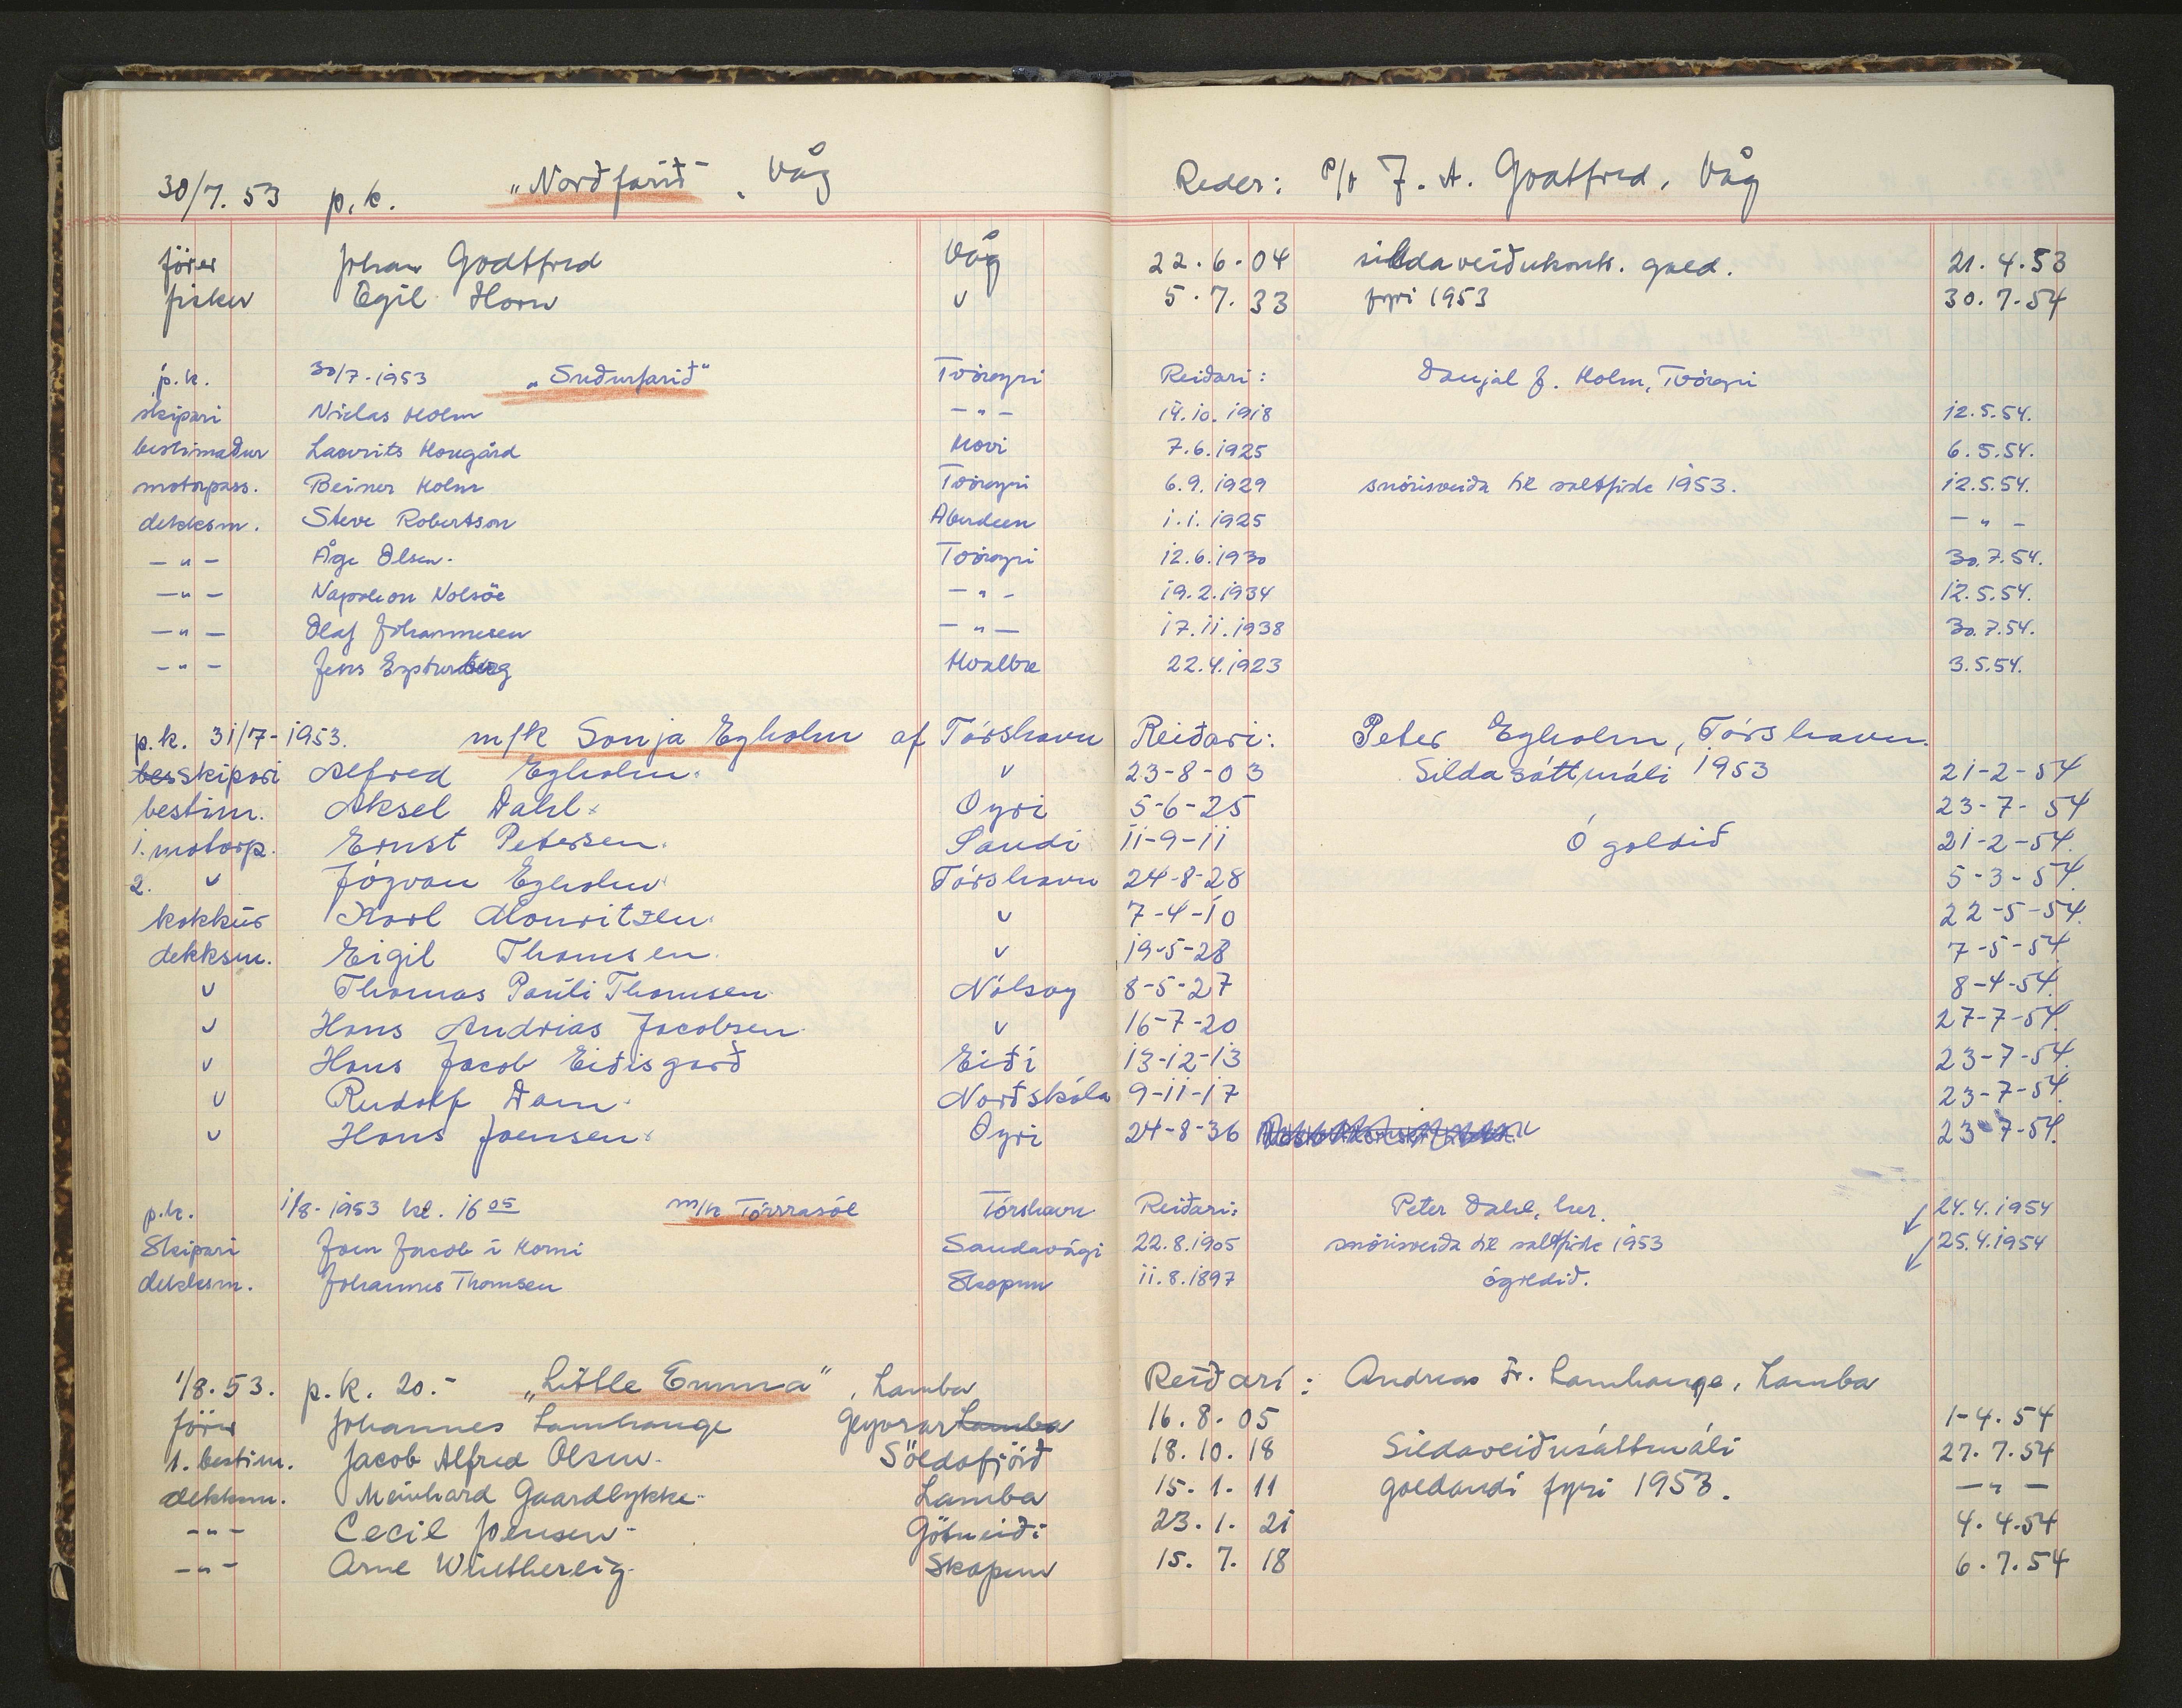 30/7. 53 p.k. „Norðfarið“, Våg Reder: P/r J. A. Godtfred, Våg
förer Johan Godtfred Våg 22.6.04 sildaveiðukontr. gæld. 21.4.53
fisker Egil Horn v 5.7.33 fyri 1953 30.7.54
p.k. 30/7-1953 „Suðurfarið“ Tvöroyri Reiðari: Danjal J. Holm, Tvöroyri
skipari Niclas Holm -"- 14.10.1918 12.5.54.
bestimaður Laurits Hougård Hovi 7.6.1925 6.5.54.
motorpass. Beiner Holm Tvöroyri 6.9.1929 snörisveiða til saltfisk 1953. 12.5.54.
dekksm. Steve Robertson Aberdeen 1.1.1925 -"-
-"- Åge Olsen. Tvöroyri 12.6.1930 30.7.54.
-"- Napoleon Nolsöe -"- 19.2.1934 12.5.54.
-"- Olaf Johannesen -"- 17.11.1938 30.7.54.
-"- Jens Eysturberg Hvalba 22.4.1923 3.5.54.
p.k. 31/7-1953. m/k Sonja Egholm af Tórshavn Reiðari: Peter Egholm, Tórshavn.
bes skipari Alfred Egholm. v 23-8-03 Sildasáttmáli 1953 21-2-54
bestim. Aksel Dahl. Oyri 5-6-25 23-7-54
1. motorp. Ernst Petersen. Sandi 11-9-11 Ógoldið 21-2-54.
2. v Jógvan Egholm Tórshavn 24-8-28 5-3-54.
kokkur Karl Mouritzen. v 7-4-10 22-5-54.
dekksm. Eigil Thomsen. v 19-5-28 7-5-54.
v Thomas Pauli Thomsen Nólsoy 8-5-27 8-4-54.
v Hans Andrias Jacobsen. v 16-7-20 27-7-54.
v Hans Jacob Eiðisgarð Eiði 13-12-13 23-7-54.
v Rudolf Dam. Norðskála 9-11-17 23-7-54.
v Hans Joensen. Oyri 24-8-36 23-7-54.
p.k. 1/8-1953 kl. 16 05 m/k Tórrasól Tórshavn Reiðari: Peter Dahl, her. 24.4.1954
Skipari Joen Jacob í Horni Sandavági 22.8.1905 snörisveiða til saltfisk 1953 25.4.1954
dekksm. Johannes Thomsen Skopun 11.8.1897 ógoldið.
1/8.53. p.k. 20.- „Little Emma“, Lamba Reiðari: Andreas Fr. Lamhauge, Lamba
förer Johannes Lamhauge Glyvrar Lamba 16.8.05 1-4.54
1. bestim. Jacob Alfred Olsen. Söldafjörð 18.10.18 Sildaveiðusáttmáli 27.7.54
dekksm. Meinhard Gaardlykke. Lamba 15.1.11 goldandi fyri 1953. -"-
-"- Cecil Joensen- Götueiði 23.1.21 4.4.54
-"- Arne Winthereig. Skopun 15.7.18 6.7.54